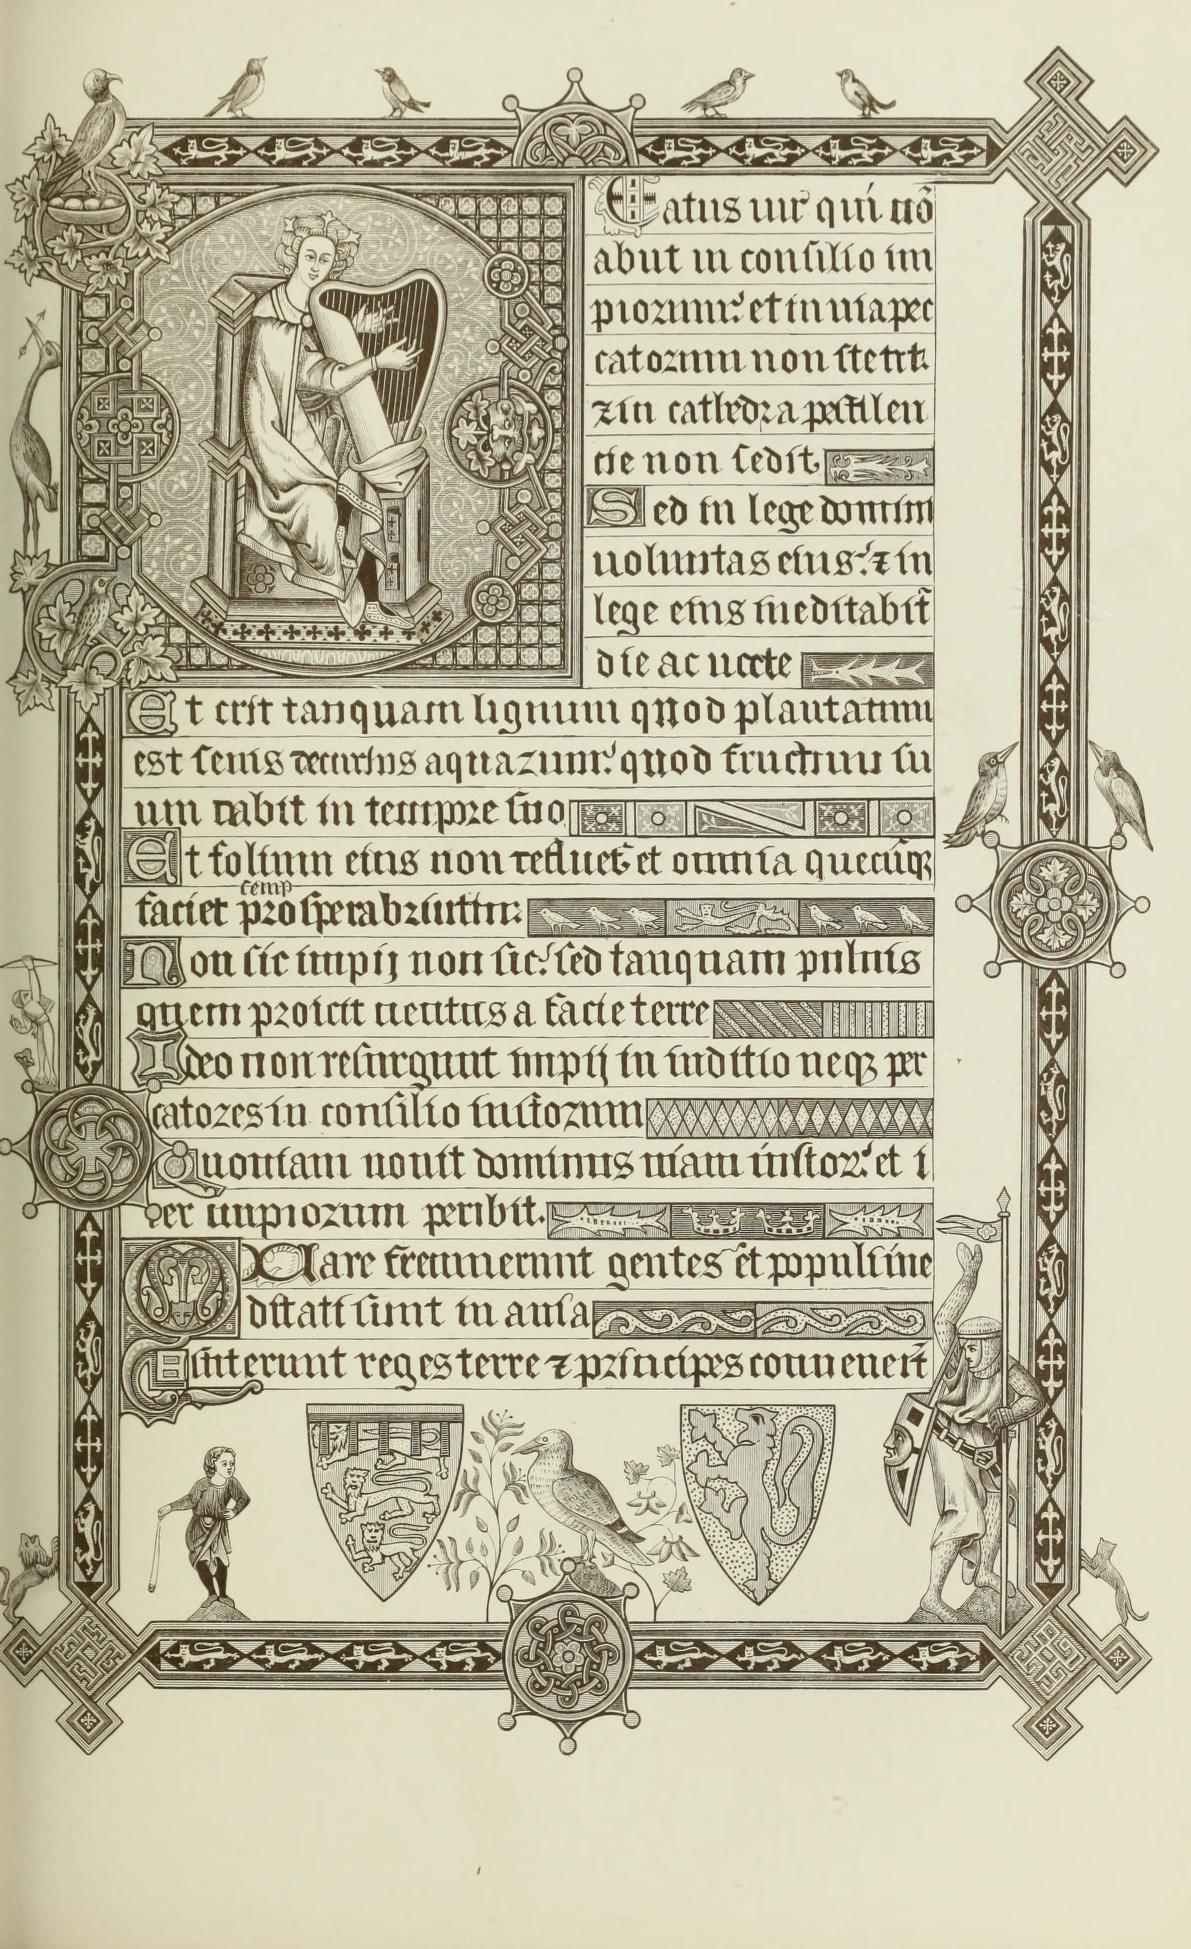 Eatus uir qui nõ
abut in consilio im
piorum: et in uia pec
catorum non stetit:
⁊ in cathedra pestilen
cie non sedit.
Sed in lege domini
uoluntas eius: ⁊ in
lege eius meditabit̃
die ac nocte
Et erit tanquam lignum quod plantatum
est secus decursus aquarum: quod fructum su
um dabit in tempore suo
Et folium eius non defluet: et omnia quecũqꝫ
faciet semp
prosperabuntur:
Non sic impij non sic: sed tanquam puluis
quem proicit uentus a facie terre
Ideo non resurgunt impij in iudicio neqꝫ pec
catores in consilio iustorum
Quoniam nouit dominus uiam iustorꝝ: et i
ter impiorum peribit.
Quare fremuerunt gentes et populi me
ditati sunt in ania
Astiterunt reges terre ⁊ principes conuenert̃